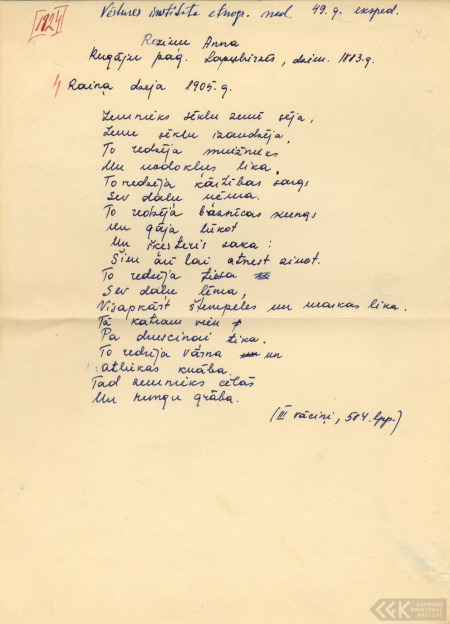 1824
Vēstures institūta etnogr. nod. 49. g. eksped.
Anna
Rugāju pag. Lapubirzēs, dzim. 1883. g.
4 Raiņa dzeja 1905. g.
Zemnieks sēklu zemē sēja,
Zeme sēklu izaudzēja,
To redzēja muižnieks
Un nodokļus lika.
To redzēja kārtības sargs
Sev daļu ņēma.
To redzēja baznīcas kungs
Un gāja lūkot
Un ķesteris saka:
Šim arī lai atnest zinot.
To redzēja tiesa
Sev daļu lēma,
Visapkārt štempeles un markas lika.
Tā katram vien
Pa druscinai tika.
To redzēja vārna un
atliekas knāba.
Tad zemnieks cēlās
Un rungu grāba.
(III vāciņi, 584. lpp.)
LATVIEŠU
FOLKLORAS
KRĀTUVE